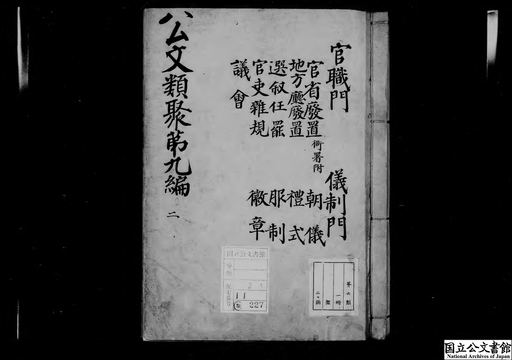 公文類聚第九編
二
官職門
官省廢置 衙署附
地方廳廢置
選叙任罷
官吏雜規
議會
儀制門
朝儀
禮式
服制
徽章
国立公文書館
2A
11
227
国立公文書館
National Archives of Japan